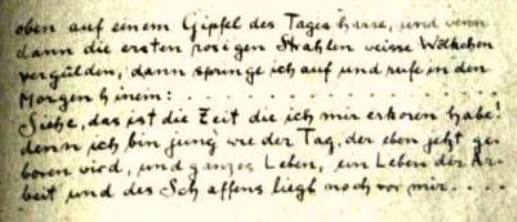 oben auf einem Gipfel des Tages harre, und wenn
dann die ersten rosigen Strahlen weisse Wölkchen
vergülden, dann springe ich auf und rufe in den
Morgen hinein: . . . . . . . . . . . . . . .
Siehe, das ist die Zeit die ich mir erkoren habe!
denn ich bin jung wie der Tag, der eben jetzt ge-
boren wird, und ganzes Leben, ein Leben der Ar-
beit und des Schaffens liegt noch vor mir. . . .